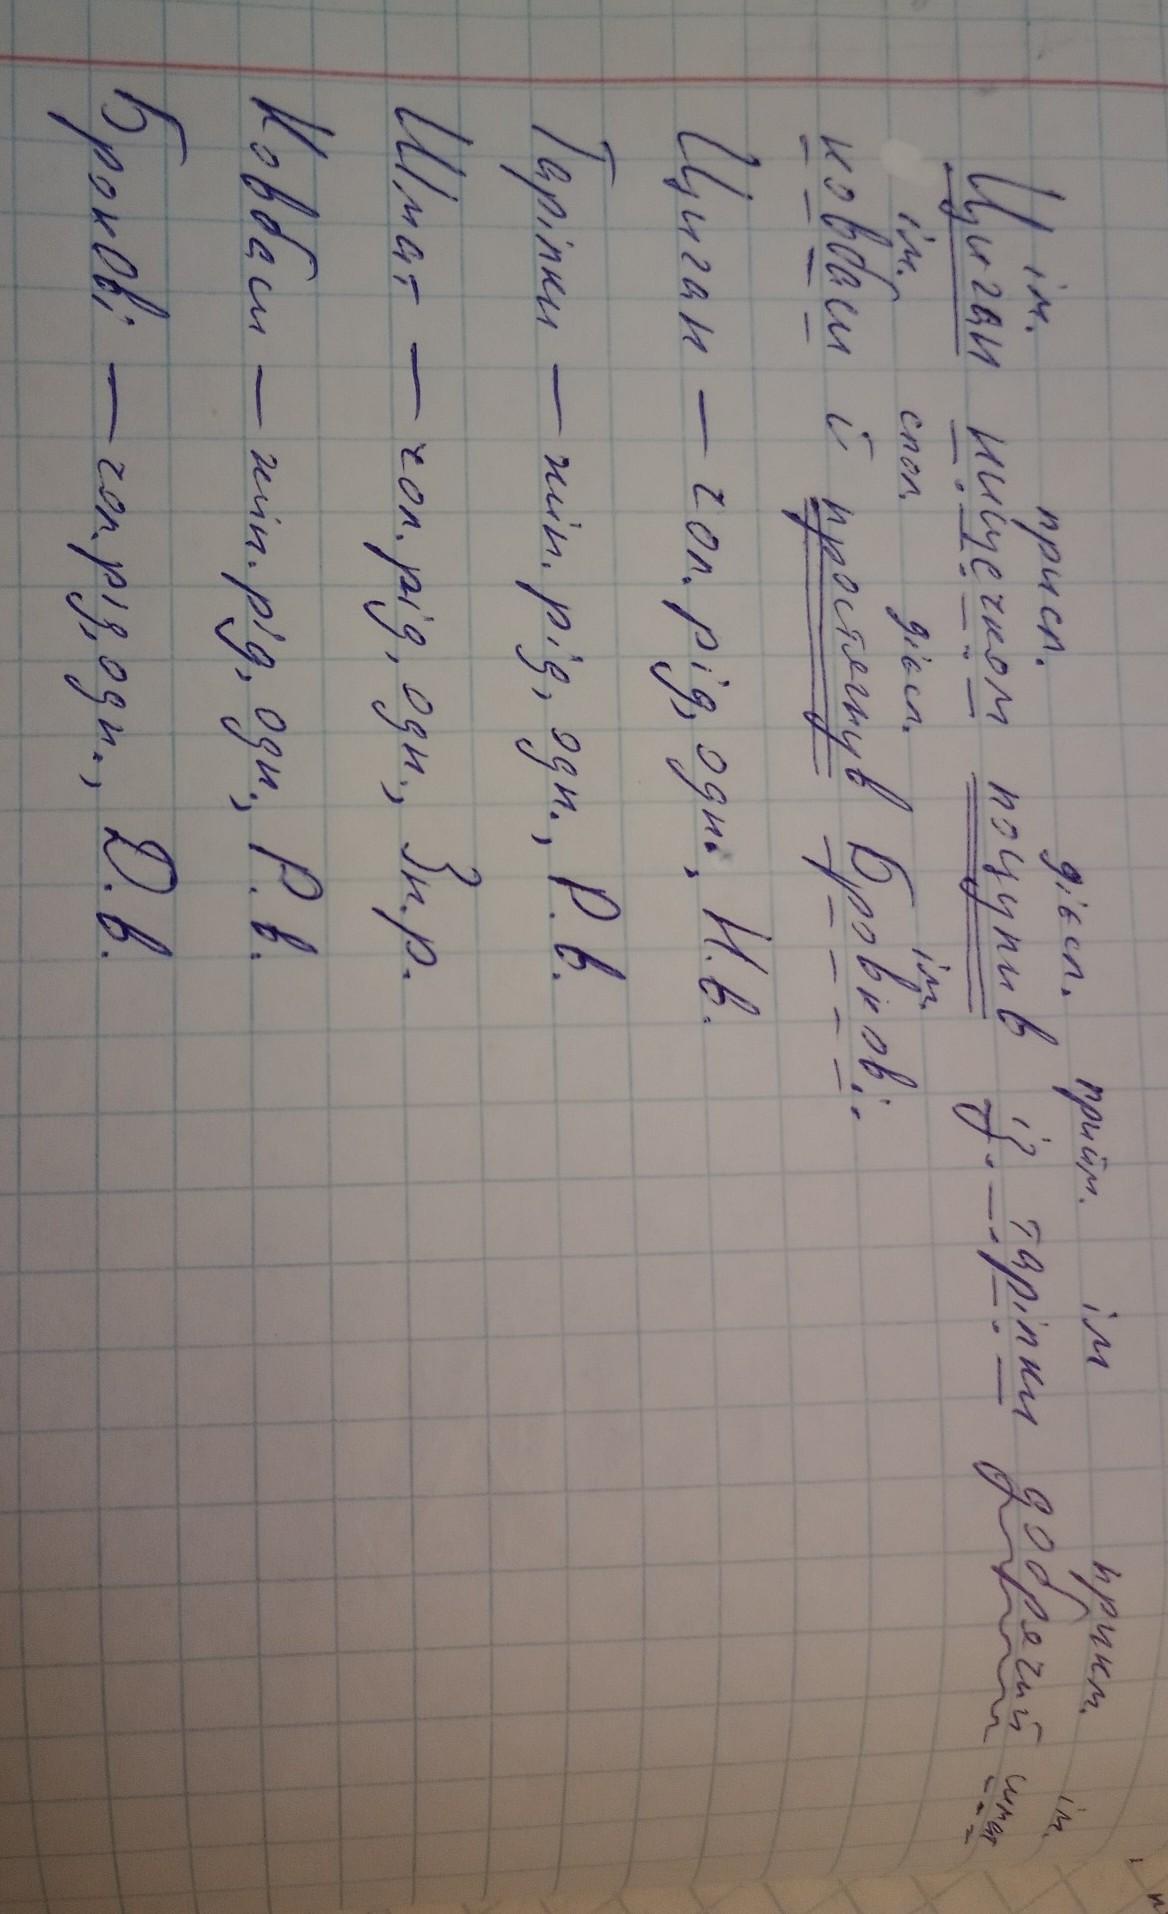 ім. присп. дієсл. прийм. ім прикм. ім.
Циган нищечком поцупив із тарілки добрячий шмат
ім. спол. дієсл. ім.
ковбаси й простягнув Бровкові.
Циган — чол. рід, одн., Н.в.
Тарілки — жін. рід, одн., Р.в.
Шмат — чол. рід, одн., Зн.р.
Ковбаси — жін. рід, одн., Р.в.
Брокові — чол. рід, одн., Д.в.